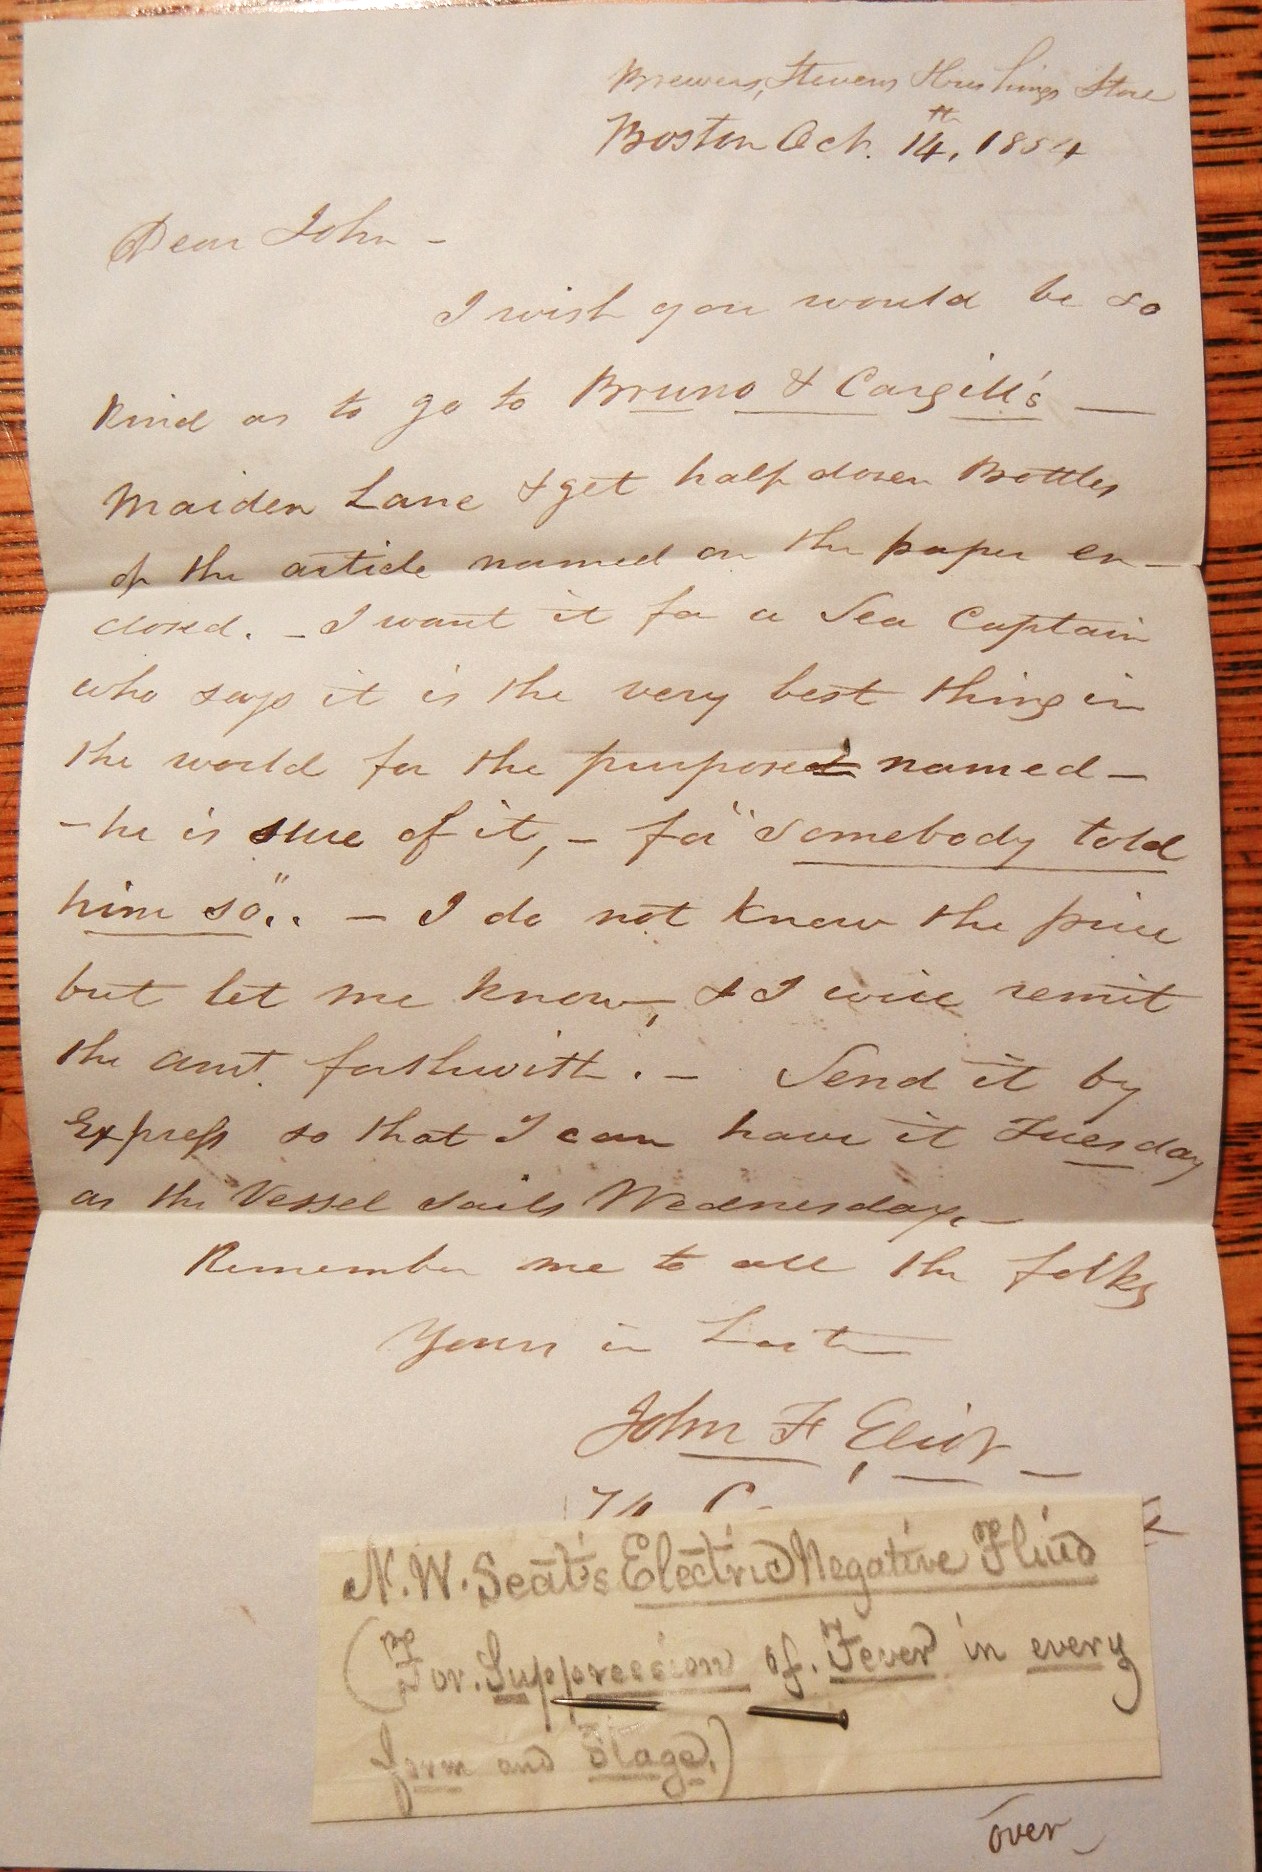 Brewers, Stevens & Cushings Store
Boston Oct. 14th, 1854
Dear John -
I wish you would be so
kind as to go to Bruno & Cargill's —
Maiden Lane & get half dozen Bottles
of the article named on the paper en-
closed. - I want it for a Sea Captain
who says it is the very best thing in
the world for the purposed named -
- he is sure of it, - for "somebody told
him so".. - I do not know the price
but let me know, & I will remit
the amt. forthwith. - Send it by
Express so that I can have it Tuesday
as the Vessel sails Wednesday. -
Remember me to all the folks
Yours in
John F Eliot
N. W. Seat's Electric Negative Fluid
(For. Suppression of. Fever in every
form and Stage.)
over